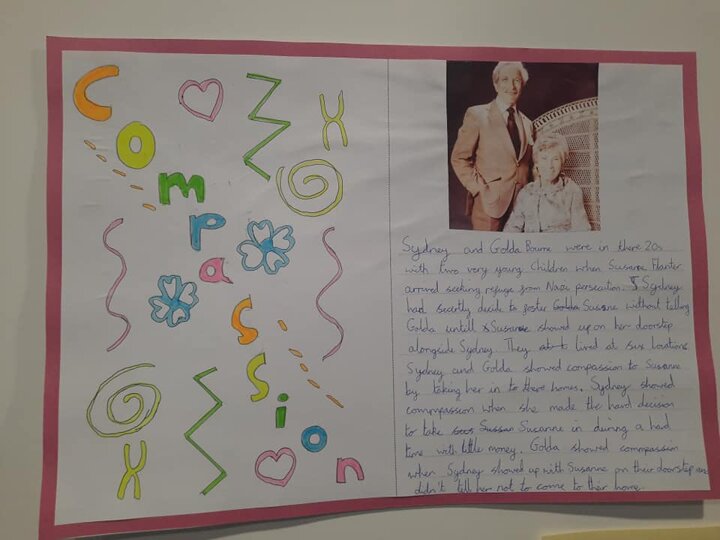 Compassion
Sydney and Golda Bourne were in there 20s
with two very young children when Susanne Flanter
arrived seeking refuge from Nazi persecution. Sydney
had secretly decide to foster Golda Susanne without telling
Golda untill Susanne showed up on her doorstep
alongside Sydney. They lived at six locations.
Sydney and Golda showed compassion to Susanne
by taking her in to there homes. Sydney showed
commpassion when she made the hard decision
to take Sussan Suzanne in during a hard
time with little money. Golda showed commpassion
when Sydney showed up with Susanne on their doorstep
didn't tell her not to come to their home.